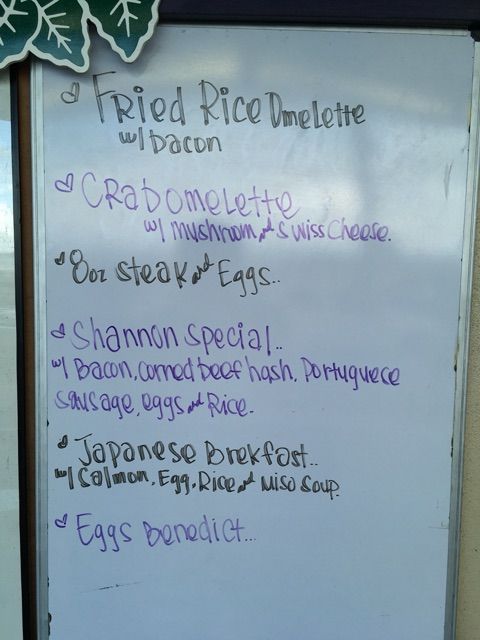 Fried Rice Omelette
w/ bacon
Crab omelette
w/ mushroom and Swiss Cheese.
8oz steak and Eggs..
Shannon special..
w/ Bacon, corned beef hash, Portuguece
sausage, eggs and Rice.
Japanese Brekfast..
w/ Salmon, Egg, Rice and Miso Soup.
Eggs Benedict...